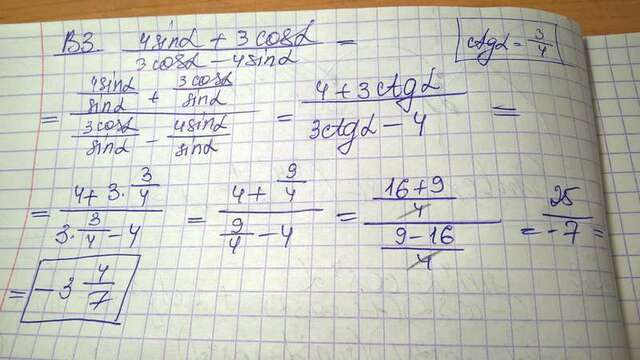 B3. (4sinα + 3cosα)/(3cosα − 4sinα) = ctgα = 3/4
= (4sinα/sinα + 3cosα/sinα)/(3cosα/sinα − 4sinα/sinα) = (4 + 3ctgα)/(3ctgα − 4) =
= (4 + 3·3/4)/(3·3/4 − 4) = (4 + 9/4)/(9/4 − 4) = ((16+9)/4)/((9−16)/4) = 25/−7 =
= −3 4/7